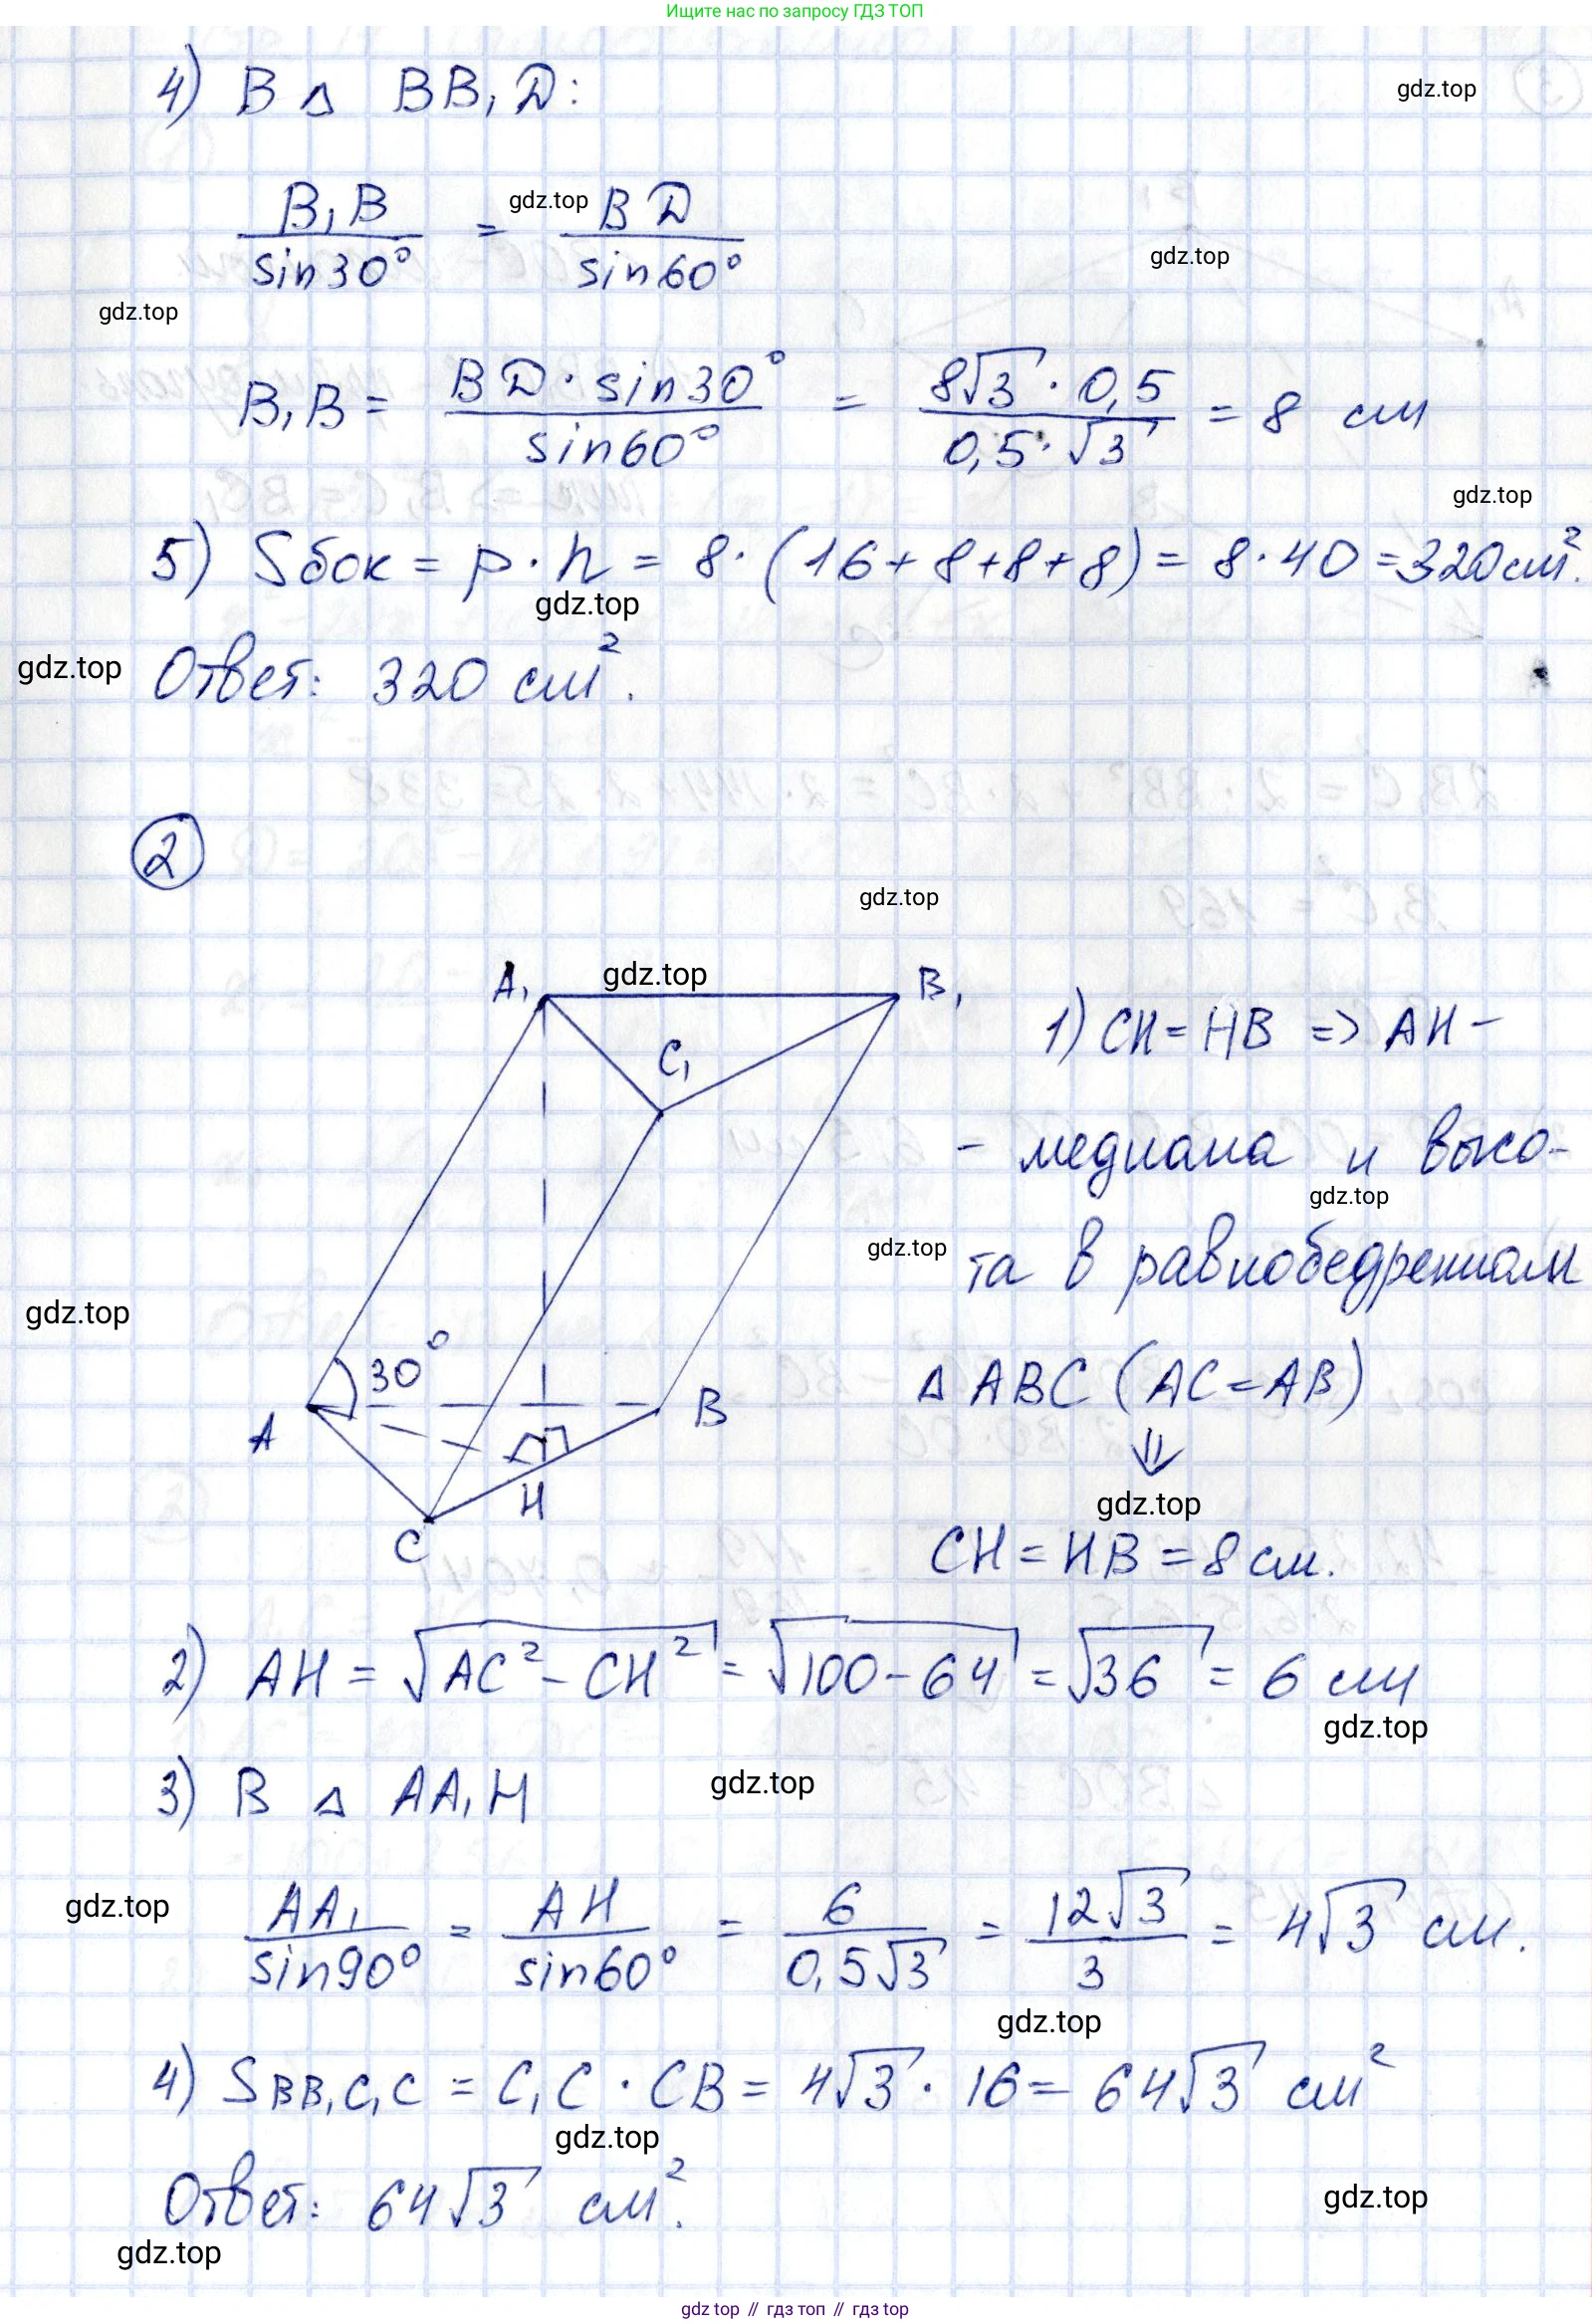 Ищите нас по запросу ГДЗ ТОП
4) В △ BB₁D:
gdz.top
B₁B / sin30° = BD / sin60°
gdz.top
gdz.top
gdz.top
B₁B = BD · sin30° / sin60° = 8√3 · 0,5 / 0,5 · √3 = 8 см
gdz.top
5) Sбок = p · h = 8 · (16 + 8 + 8 + 8) = 8 · 40 = 320 см².
gdz.top
gdz.top
Ответ: 320 см².
2
gdz.top
A₁
gdz.top
B₁
C₁
30°
A
B
H
C
1) CH = HB => AH –
– медиана и высо-
gdz.top
та в равнобедренном
gdz.top
gdz.top
△ ABC (AC = AB)
⇓
gdz.top
CH = HB = 8 см.
2) AH = √(AC² – CH²) = √(100 – 64) = √36 = 6 см
gdz.top
3) В △ AA₁H
gdz.top
gdz.top
AA₁ / sin90° = AH / sin60° = 6 / 0,5√3 = 12√3 / 3 = 4√3 см.
gdz.top
4) S BB₁C₁C = C₁C · CB = 4√3 · 16 = 64√3 см²
gdz.top
Ответ: 64√3 см².
gdz.top
gdz.top
gdz top // гдз топ // гдз top